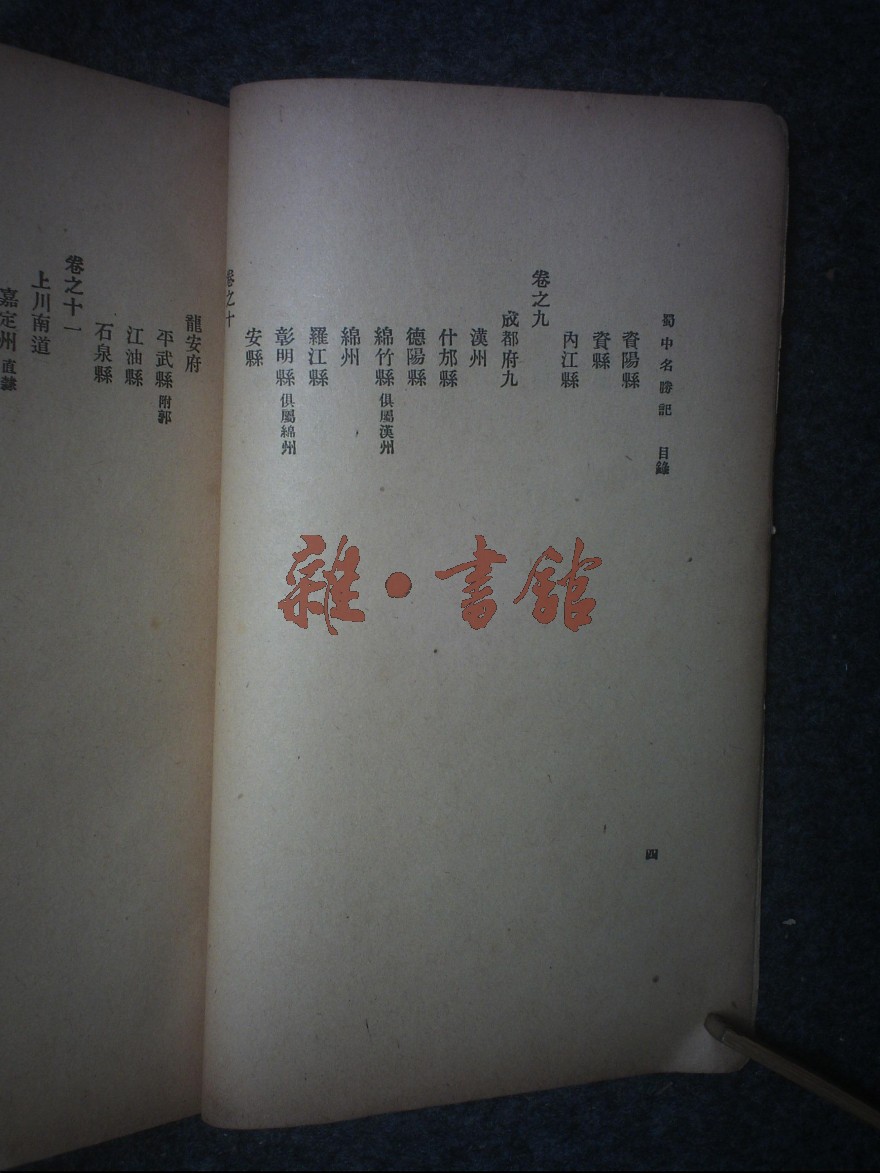 蜀中名勝記 目錄
資陽縣
資縣
內江縣
卷之九
成都府九
漢州
什邡縣
德陽縣
綿竹縣 俱屬漢州
綿州
羅江縣
彰明縣 俱屬綿州
安縣
卷之十
四
龍安府
平武縣 附郭
江油縣
石泉縣
卷之十一
上川南道
嘉定州 直隸
雜·書館